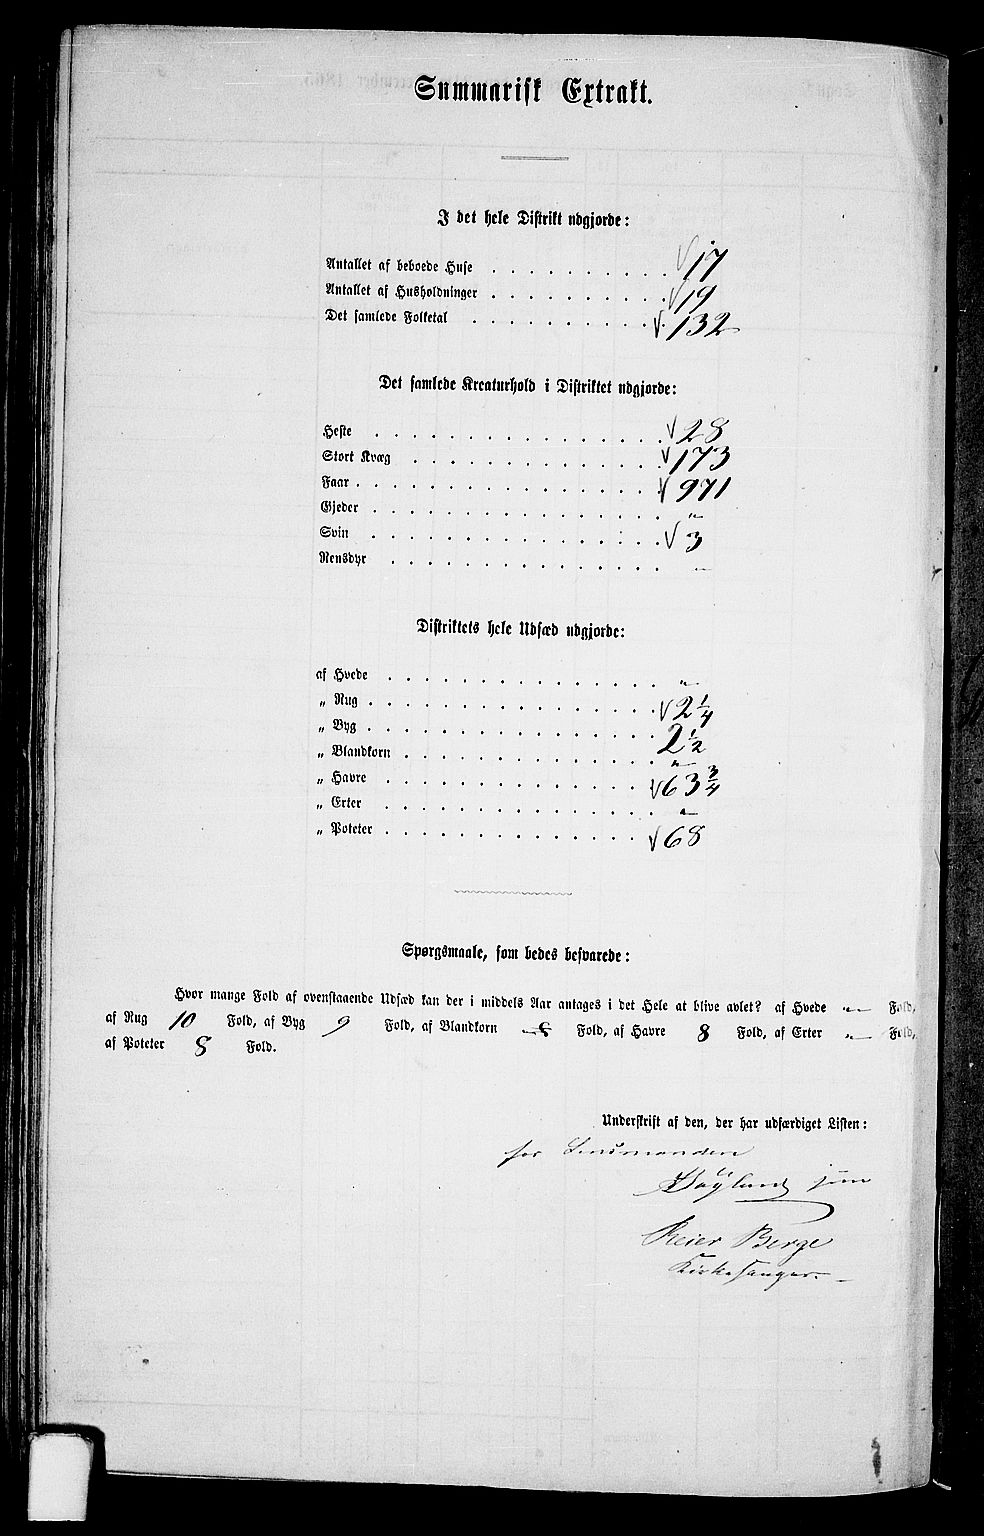 Summarisk Extrakt.
I det hele Distrikt udgjorde:
Antallet af beboede Huse . . . . . . . . √ 17
Antallet af Husholdninger . . . . . . . . √ 19
Det samlede Folketal . . . . . . . . √ 132
Det samlede Kreaturhold i Distriktet udgjorde:
Heste . . . . . . . . √ 28
Stort Kvæg . . . . . . . . √ 173
Faar . . . . . . . . √ 971
Gjeder . . . . . . . . "
Svin . . . . . . . . √ 3
Rensdyr . . . . . . . . "
Distriktets hele Udsæd udgjorde:
af Hvede . . . . . . . . "
„ Rug . . . . . . . . √ 2 1/4
„ Byg . . . . . . . . 2 1/2
„ Blandkorn . . . . . . . . "
„ Havre . . . . . . . . √ 63 3/4
„ Erter . . . . . . . . "
„ Poteter . . . . . . . . √ 68
Spørgsmaale, som bedes besvarede:
Hvor mange Fold af ovenstaaende Udsæd kan der i middels Aar antages i det Hele at blive avlet? af Hvede " Fold,
af Rug 10 Fold, af Byg 9 Fold, af Blandkorn " Fold, af Havre 8 Fold, af Erter " Fold,
af Poteter 8 Fold.
Underskrift af den, der har udfærdiget Listen:
for Lensmanden
jun
Reier Berge
Kirkesanger.